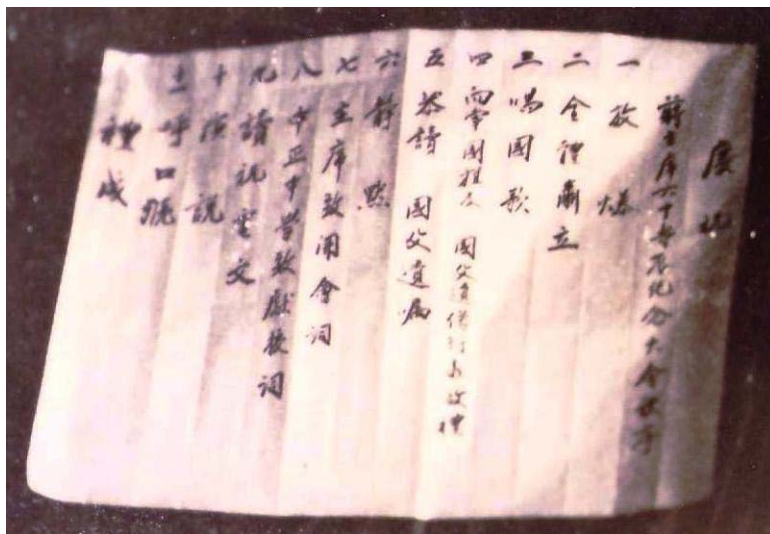 慶祝
蔣主席六十壽辰紀念大會秩序
一 放爆
二 全體肅立
三 唱國歌
四 向党國旗及 國父遺像行三敬禮
五 恭讀 國父遺囑
六 靜默
七 主席致開會詞
八 中正中學致獻校詞
九 讀祝壽文
十 演說
十一 呼口號
禮成